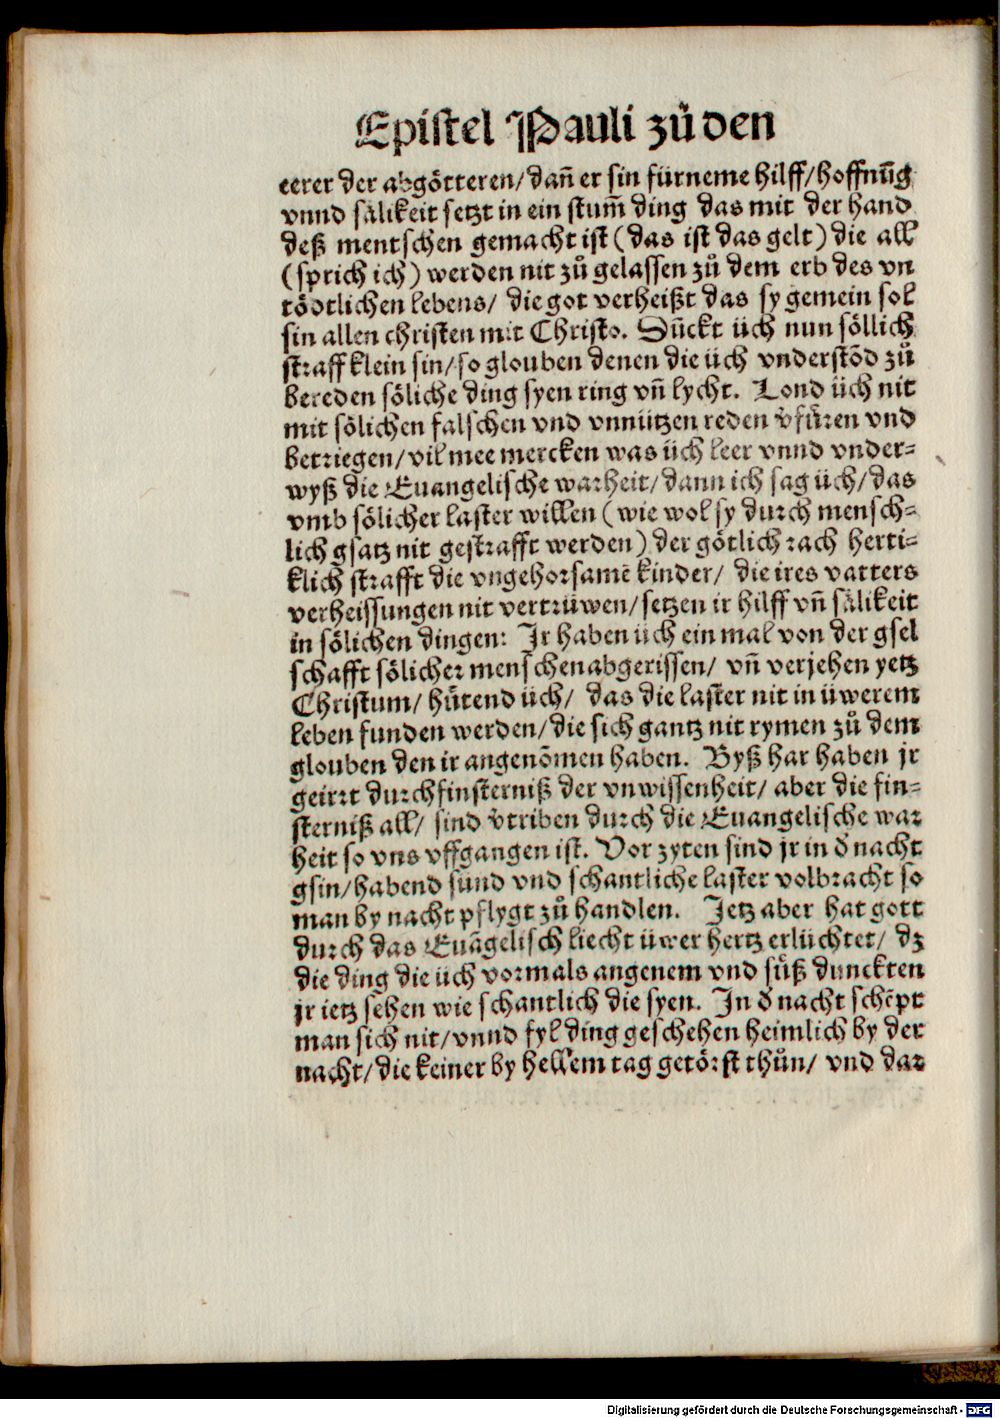 Epistel Pauli zů den
eerer der abgötteren/ dañ er sin fürneme hilff/ hoffnūg
vnnd sälikeit setzt in ein stum̃ ding das mit der hand
deß mentschen gemacht ist (das ist das gelt) die all
(sprich ich) werden nit zů gelassen zů dem erb des vn
tödtlichen lebens/ die got verheißt das sy gemein sol
sin allen christen mit Christo. Dũckt üch nun söllich
straff klein sin/ so glouben denen die üch vnderstōd zů
bereden söliche ding syen ring vñ lycht. Lond üch nit
mit sölichen falschen vnd vnnützen reden v̄füren vnd
betriegen/ vil mee mercken was üch leer vnnd vnder⸗
wyß die Euangelische warheit/ dann ich sag üch/ das
vmb sölicher laster willen (wie wol sy durch mensch⸗
lich gsatz nit gestrafft werden) der götlich rach herti⸗
klich strafft die vngehorsamē kinder/ die ires vatters
verheissungen nit vertrüwen/ setzen ir hilff vñ sälikeit
in sölichen dingen: Ir haben üch ein mal von der gsel
schafft sölicher menschen abgerissen/ vñ verjehen yetz
Christum/ hütend üch/ das die laster nit in üwerem
leben funden werden/ die sich gantz nit rymen zů dem
glouben den ir angenōmen haben. Byß har haben jr
geirrt durch finsterniß der vnwissenheit/ aber die fin⸗
sterniß all/ sind v̄triben durch die Euangelische war
heit so vns vffgangen ist. Vor zyten sind jr in d̄ nacht
gsin/ habend sünd vnd schantliche laster volbracht so
man by nacht pflygt zů handlen. Jetz aber hat gott
durch das Euāgelisch liecht üwer hertz erlüchtet/ dz
die ding die üch vormals angenem vnd süß dunckten
jr ietz sehen wie schantlich die syen. In d̄ nacht schēpt
man sich nit/ vnnd fyl ding geschehen heimlich by der
nacht/ die keiner by hellem tag getörst thůn/ vnd dar
Digitalisierung gefördert durch die Deutsche Forschungsgemeinschaft - DFG